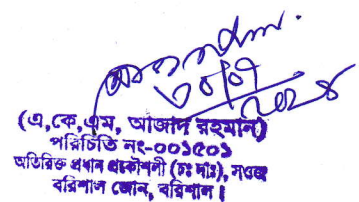 (এ,কে,এম, আজাদ রহমান)
পরিচিতি নং-০০১৫০১
অতিরিক্ত প্রধান প্রকৌশলী (চঃ দাঃ), সওজ
বরিশাল জোন, বরিশাল।